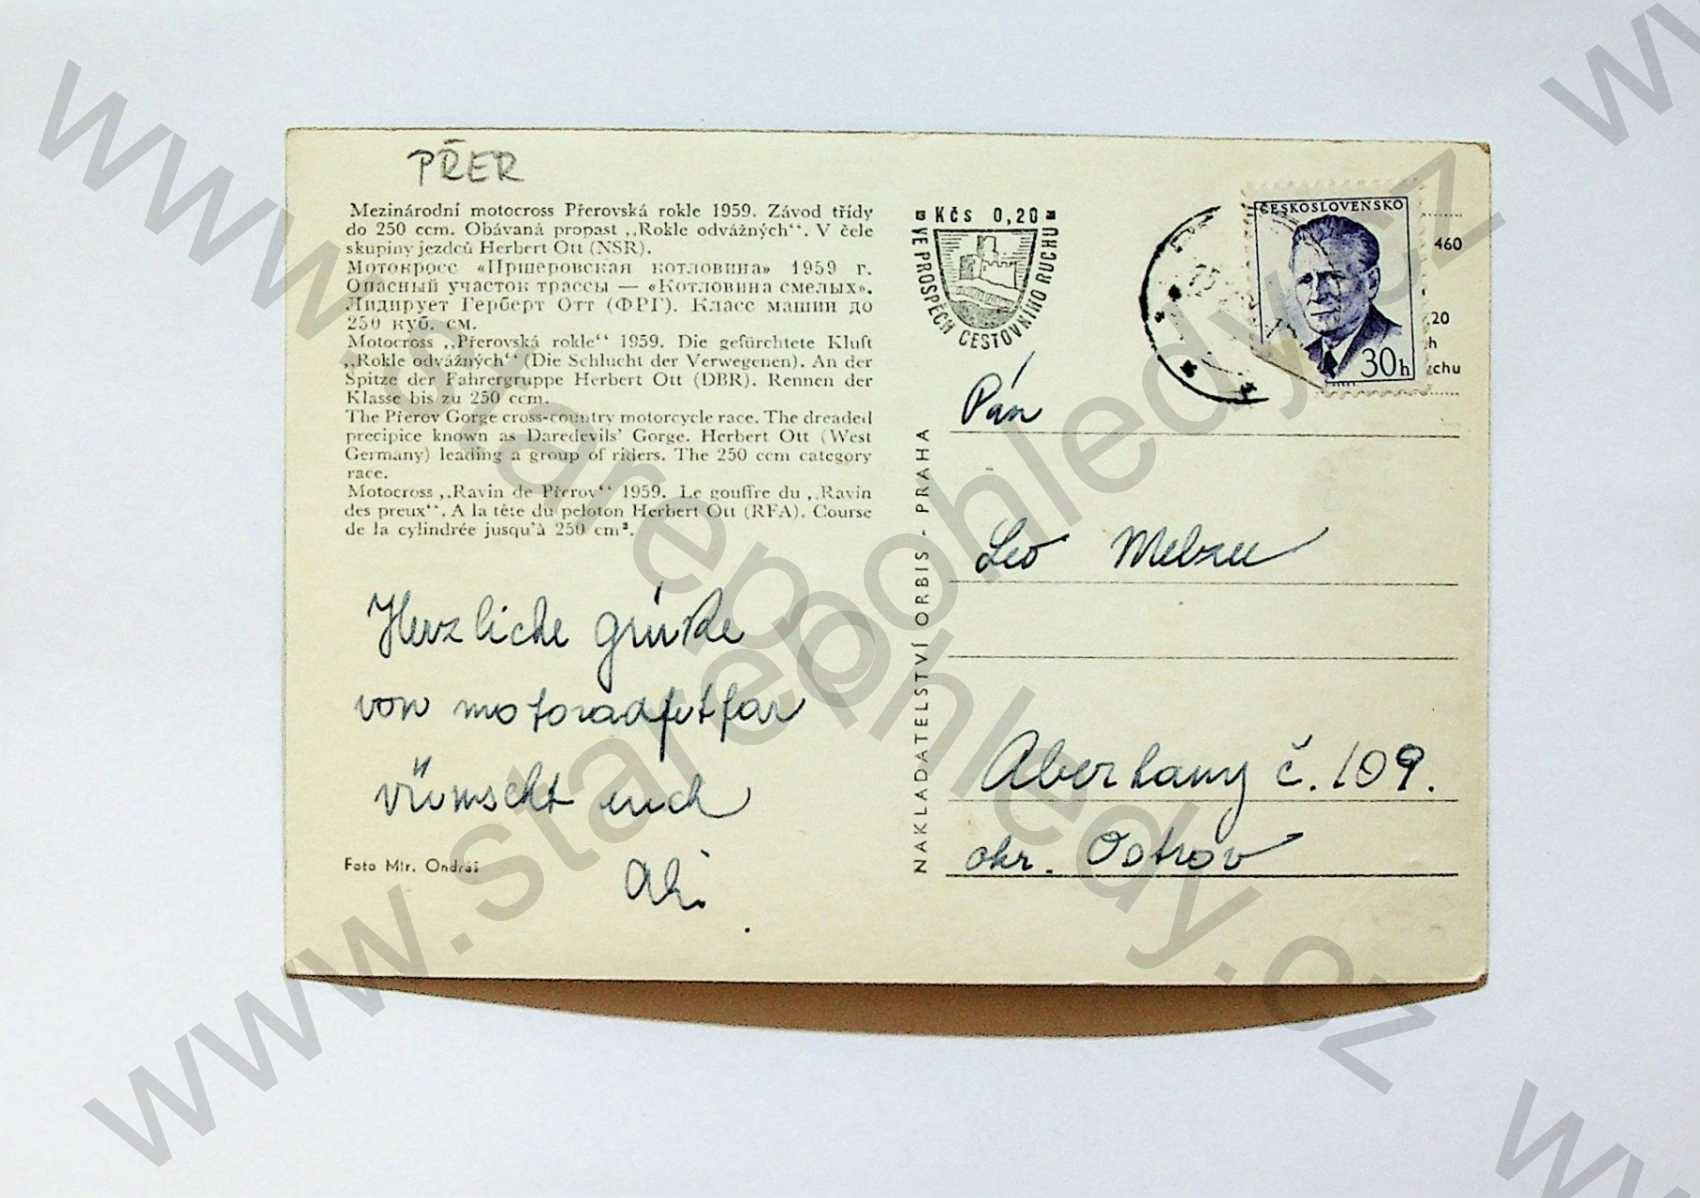 PŘER
Mezinárodní motocross Přerovská rokle 1959. Závod třídy
do 250 ccm. Obávaná propast „Rokle odvážných“. V čele
skupiny jezdců Herbert Ott (NSR).
Мотокросс «Пршеровская котловина» 1959 г.
Опасный участок трассы — «Котловина смелых».
Лидирует Герберт Отт (ФРГ). Класс машин до
250 куб. см.
Motocross „Přerovská rokle“ 1959. Die gefürchtete Kluft
„Rokle odvážných“ (Die Schlucht der Verwegenen). An der
Spitze der Fahrergruppe Herbert Ott (DBR). Rennen der
Klasse bis zu 250 ccm.
The Přerov Gorge cross-country motorcycle race. The dreaded
precipice known as Daredevils' Gorge. Herbert Ott (West
Germany) leading a group of riders. The 250 ccm category
race.
Motocross „Ravin de Přerov“ 1959. Le gouffre du „Ravin
des preux“. A la tête du peloton Herbert Ott (RFA). Course
de la cylindrée jusqu'à 250 cm³.
Herzliche grüße
von
wünscht euch
Foto Mir. Ondráš
NAKLADATELSTVÍ ORBIS - PRAHA
Kčs 0,20
VE PROSPĚCH CESTOVNÍHO RUCHU
ČESKOSLOVENSKO
30h
460
,20
ch
zchu
Pán
Leo
č. 109.
okr. Ostrov
www.starepohledy.cz
www.starepohledy.cz